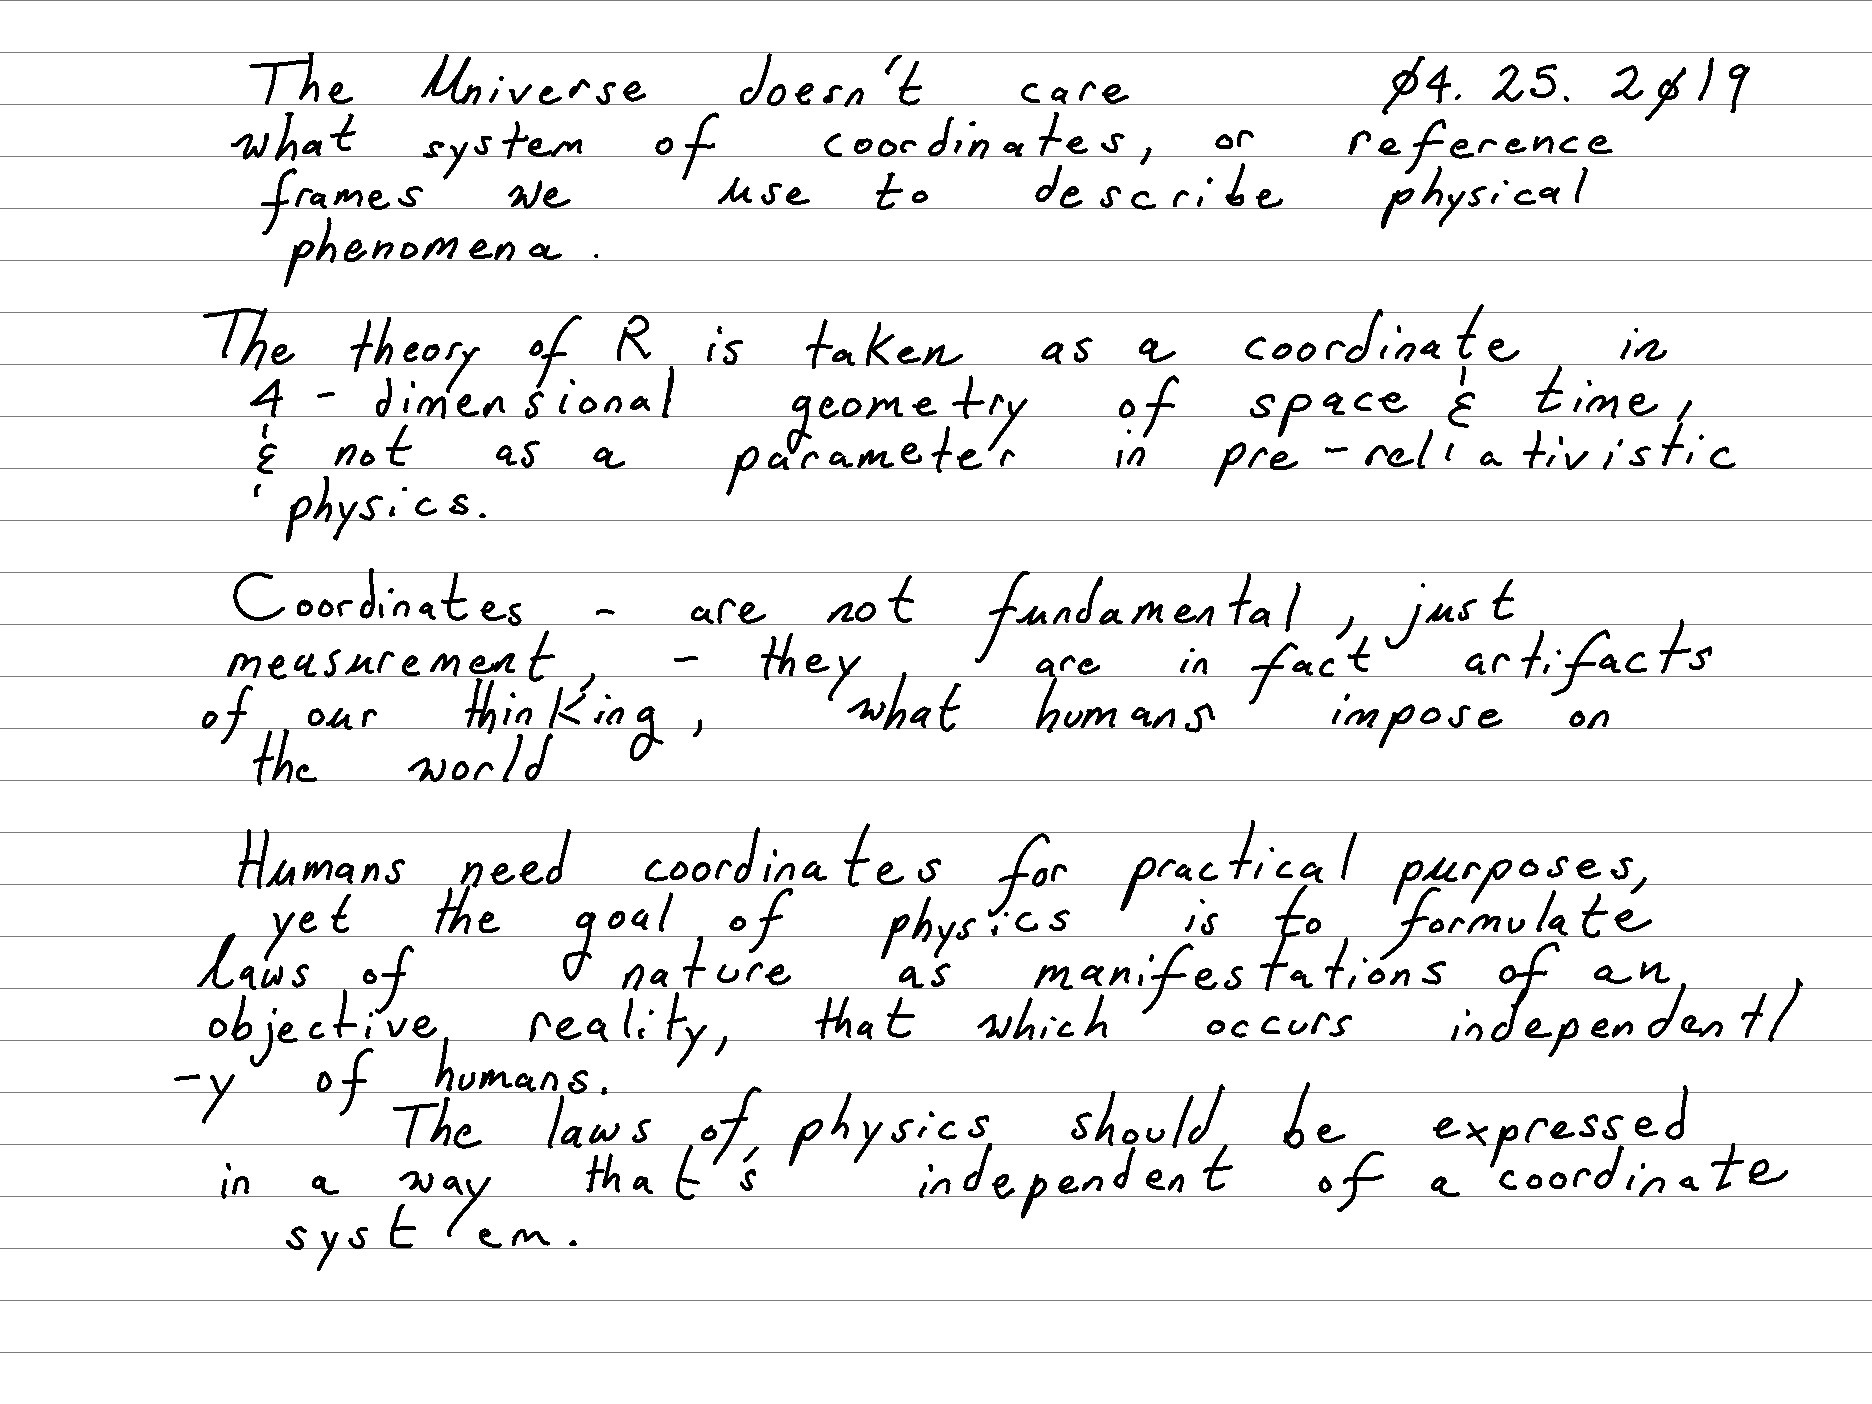 The Universe doesn't care 04. 25. 2019
what system of coordinates, or reference
frames we use to describe physical
phenomena.
The theory of R is taken as a coordinate in
4 - dimensional geometry of space & time,
& not as a parameter in pre-reliativistic
physics.
Coordinates - are not fundamental, just
measurement, - they are in fact artifacts
of our thinking, what humans impose on
the world
Humans need coordinates for practical purposes,
yet the goal of physics is to formulate
laws of nature as manifestations of an
objective reality, that which occurs independentl
-y of humans.
The laws of physics should be expressed
in a way that's independent of a coordinate
system.